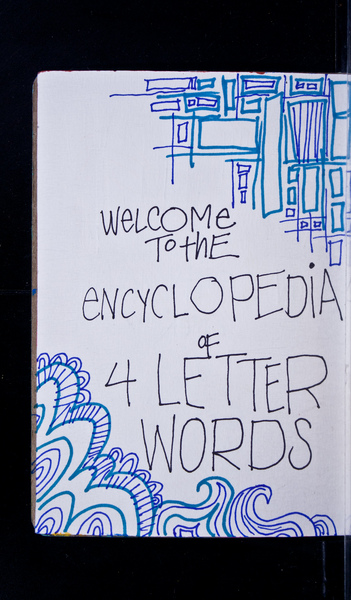 WELCOME
To thE
ENCYCLOPEDiA
OF
4 LETTER
WORDS